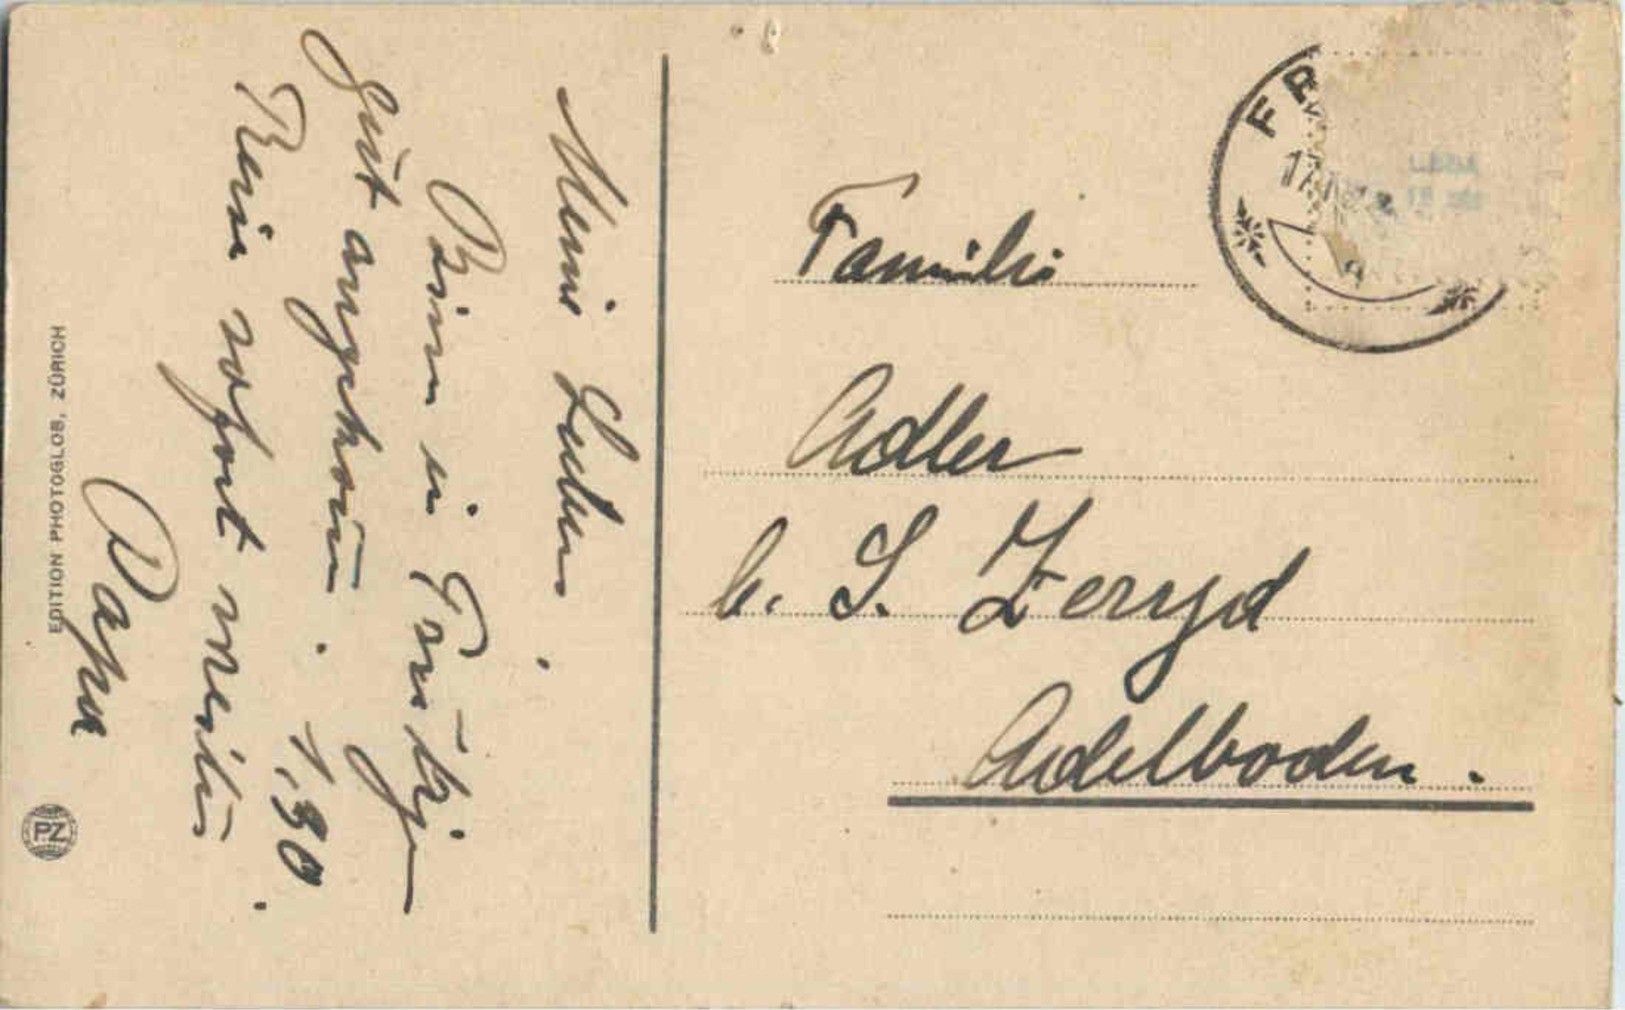 Meine Lieben
Binn in Frutigen
gut angekom̅.
1,30.
Reise sofort weiter
Papa
EDITION PHOTOGLOB, ZÜRICH
PZ
Familie
Adler
b. S. Zeryd
Adelboden.
FR
17